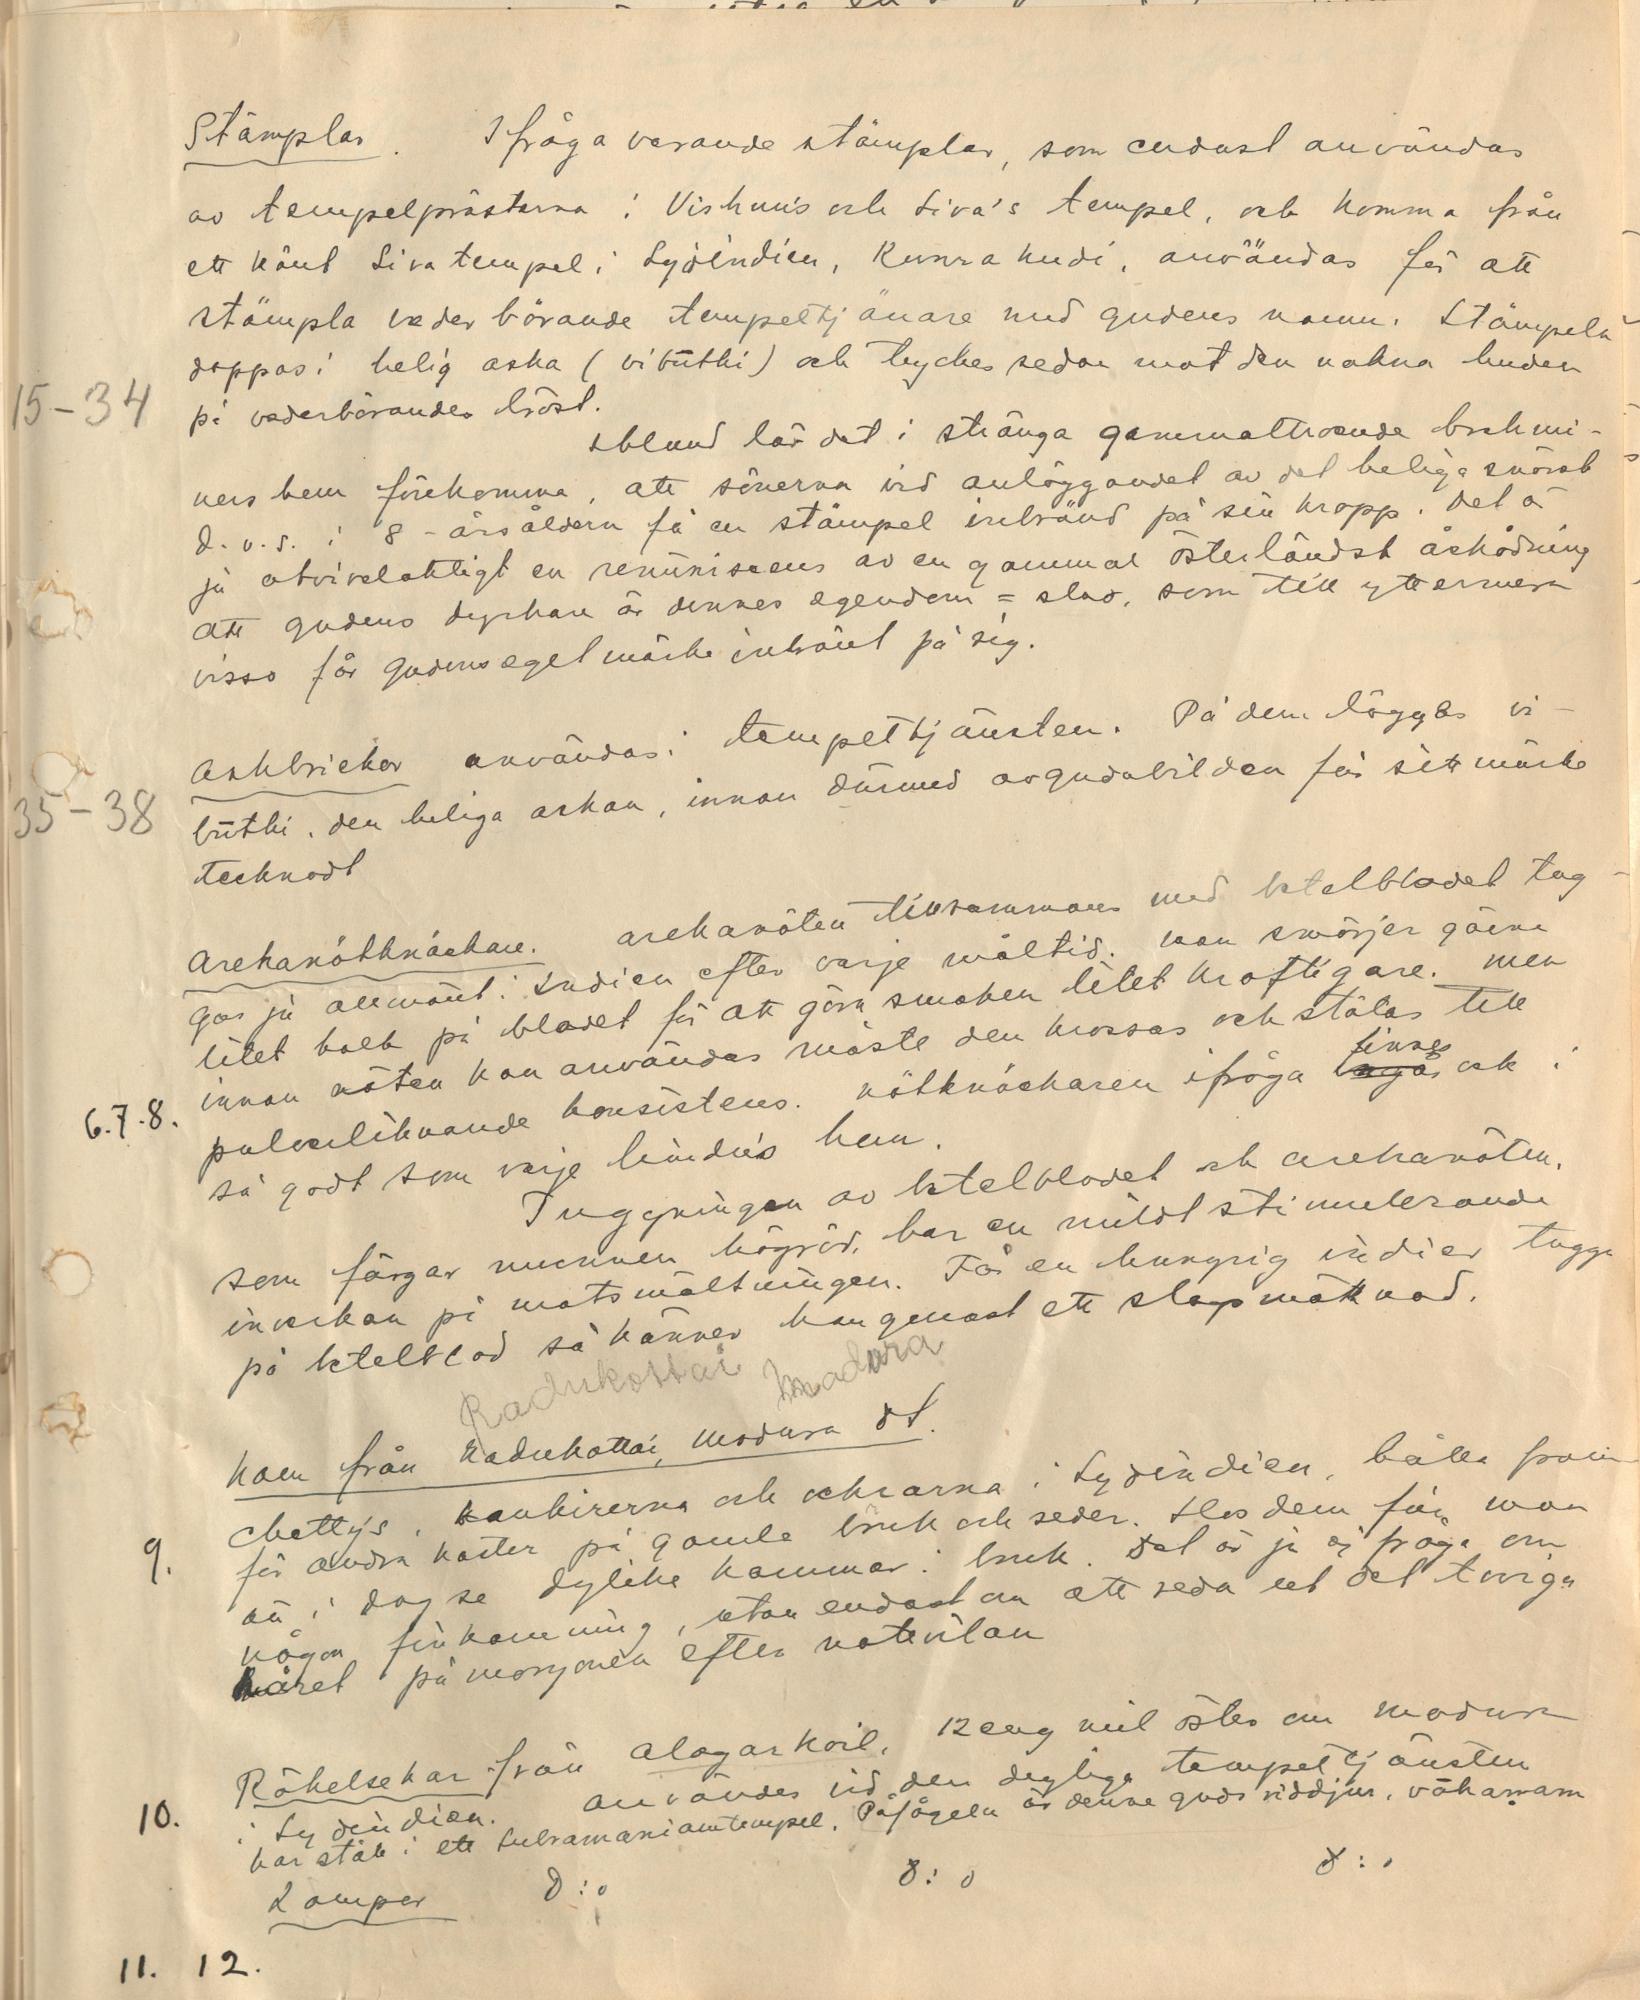 Stämplar. I fråga varande stämplar, som endast användas
av tempelprästerna i Vishnu's och Siva's tempel, och komma från
ett känt Siva tempel i Sydindien, Kunrakudi, användas för att
stämpla vederbörande tempeltjänare med gudens namn. Stämpeln
doppas i helig aska (vibüthi) och tryckes sedan mot den nakna huden
15-34
på vederbörandes bröst.
Ibland lär det i stränga gammaltroende brahmi-
ners hem förekomma, att sönerna vid anläggandet av det heliga snöret
d.v.s. i 8-årsåldern få en stämpel inbränd på sin kropp. Det är
ju otvivelaktigt en reminiscens av en gammal österländsk åskådning
att gudens dyrkare är dennes egendom = slav, som till yttermera
visso får gudens eget märke inbränt på sig.
Askbrickor användas i tempeltjänsten. På dem lägges vi-
35-38
büthi, den heliga askan, innan därmed avgudabilden får sitt märke
tecknadt
Arekanötknäckare. Arekanöten tillsammans med betelbladet tug-
gas ju allmänt i Indien efter varje måltid. Man smörjer gärna
litet kalk på bladet för att göra smaken litet kraftigare. Men
innan nöten kan användas måste den krossas och stötas till
6.7.8.
pulverliknande konsistens. Nötknäckaren ifråga finnes ock i
så godt som varje hindu's hem.
Tuggningen av betelbladet och arekanöten,
som färgar munnen högröd, har en mildt stimulerande
inverkan på matsmältningen. Får en hungrig indier tugga
på betelblad så känner han genast ett slags mättnad.
Kadukottai Madura
Kam från Kadukottai, Madura dt.
Chettys, och i Sydindien, hålla framför
för andra kaster på gamla bruk och seder. Hos dem får man
9.
än i dag se dylika kammar i bruk. Det är ju ej fråga om
någon finkamning, utan endast om att reda ut det toviga
håret på morgonen efter nattvilan
Rökelsekar från Alagarkoil, 12 eng mil öster om Madura
10.
i Sydindien. Användes vid den dagliga tempeltjänsten
har stått i ett Subramaniamtempel. Påfågeln är denne guds riddjur, vähanam
Lampor d:o d:o d:o
11. 12.